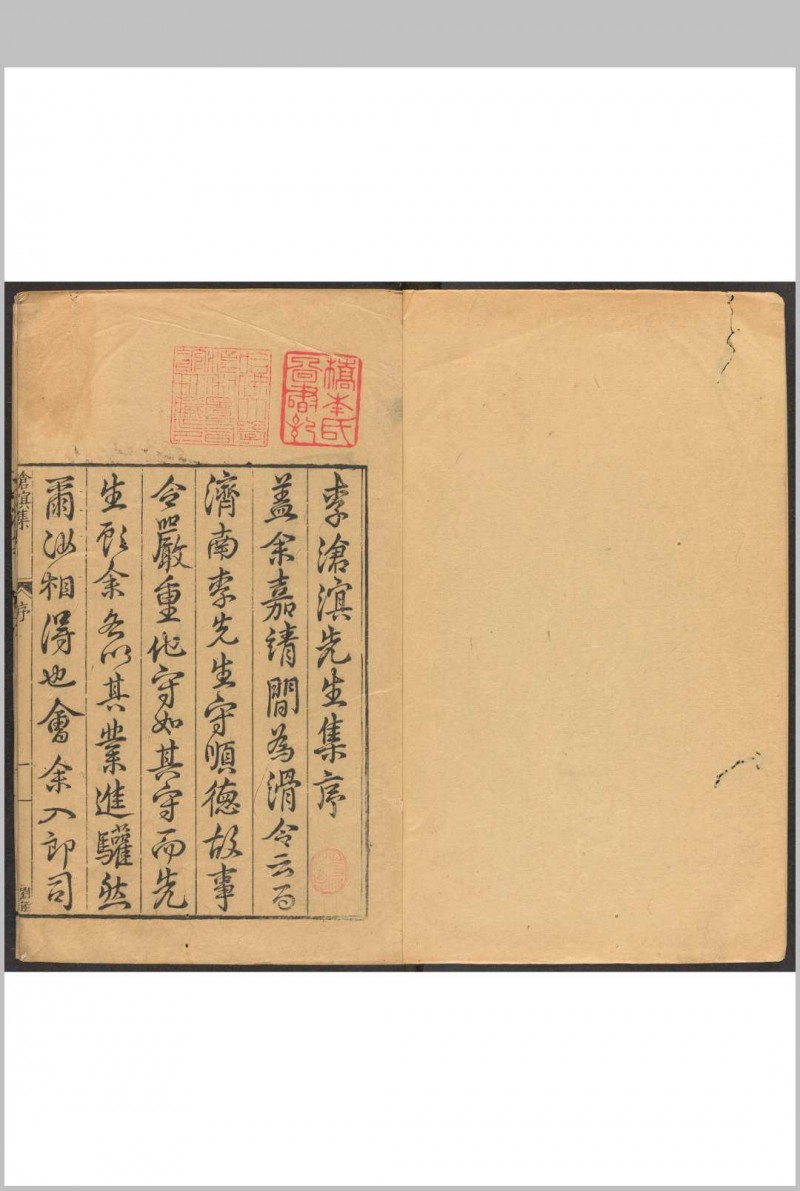 李滄溟先生集序
蓋余嘉靖間為滑令云而
濟南李先生守順德故事
令嚴重他守如其守而先
生顧余各以其業進驩然
爾汝相得也會余入郎司
滄溟集
序
一
橋本氏
圖書記